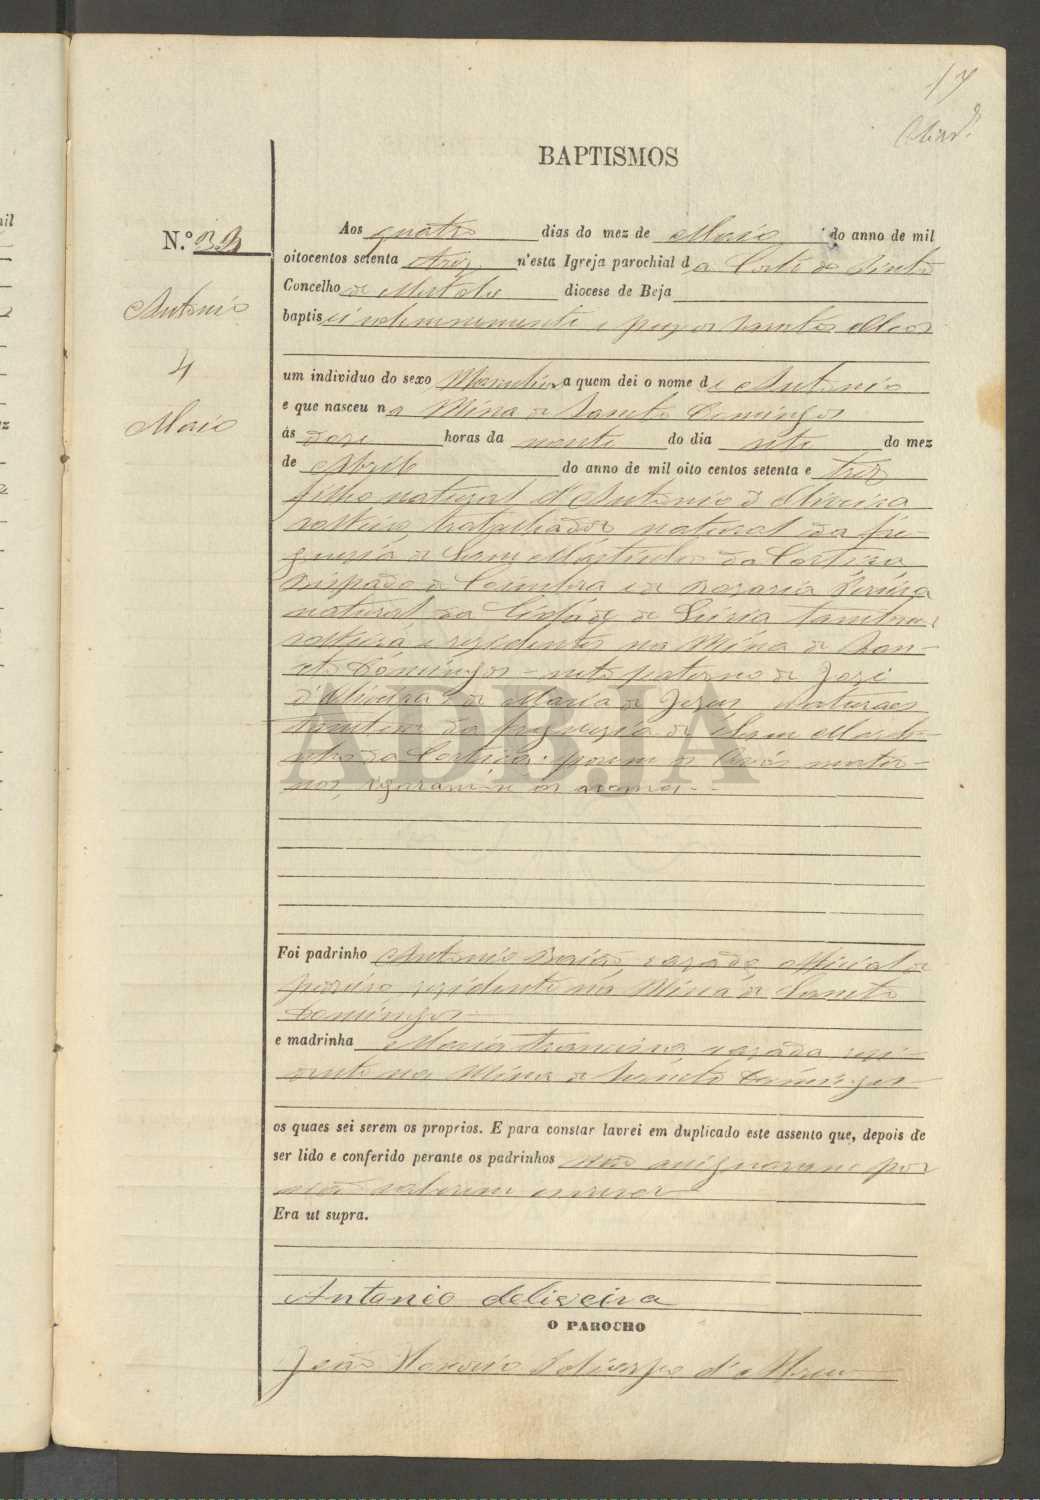 17
BAPTISMOS
N.º 33
Antonio
4
Maio
Aos quatro dias do mez de Maio do anno de mil
oitocentos setenta e trez n'esta Igreja parochial da Corte do Pinto
Concelho de Mertola diocese de Beja
baptisei solemnemente e puz os Santos Oleos
um individuo do sexo Masculino a quem dei o nome de Antonio
e que nasceu na Mina de Santo Domingos
ás doze horas da noute do dia sete do mez
de Abril do anno de mil oito centos setenta e trez
filho natural d'Antonio d'Oliveira
solteiro, trabalhador natural da fre-
guezia de Sam da Cortiça
Bispado de Coimbra e de Rozaria Pereira
natural da Cidade de Leiria tambem
solteira e rezidentes na Mina de San-
to Domingos - neto paterno de José
d'Oliveira e de Maria de Jezus naturaes
tambem da freguezia de Sam
da Cortiça: porem os Avós mater-
nos, ignoram-se os nomes. -
ADBJA
Foi padrinho Antonio cazado, Official de
rezidente na Mina de Santo
Domingos
e madrinha Maria Francisca, cazada, rezi-
dente na Mina de Santo Domingos
os quaes sei serem os proprios. E para constar lavrei em duplicado este assento que, depois de
ser lido e conferido perante os padrinhos não assignaram por
não saberem escrever
Era ut supra.
Antonio deliveira
O PAROCHO
João d'Abreu